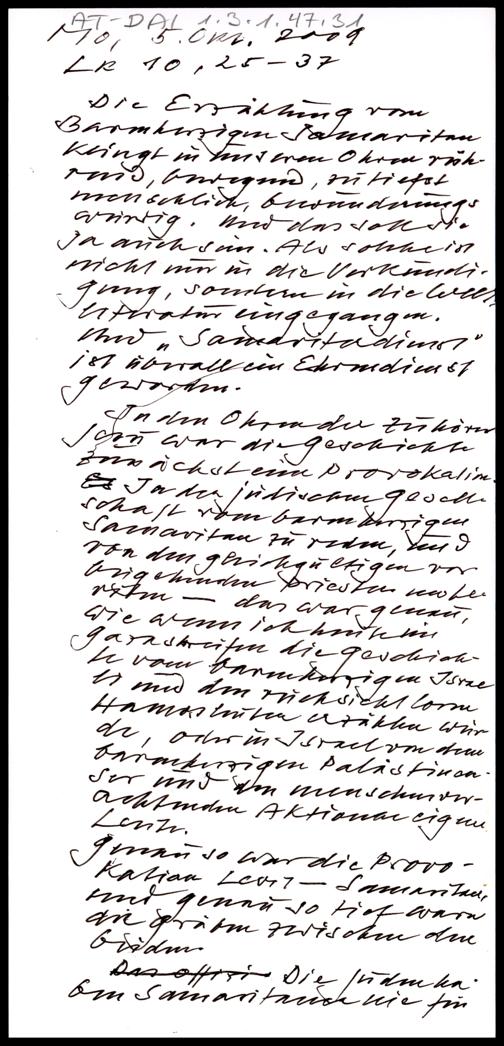 AT-DAL 1.3.1.47.31
Mo, 5. Okt. 2009
Lk 10, 25-37
Die Erzählung vom
Barmherzigen Samaritan
klingt in unseren Ohren rüh-
rend, bewegend, zutiefst
menschlich, bewunderungs
würdig. Und das soll sie
ja auch sein. Als solche ist
nicht nur in die Verkündi-
gung, sondern in die Welt
literatur eingegangen.
Und "Samariterdienst"
ist überall ein Ehrendienst
geworden.
In den Ohren der Zuhörer
Jesu war die Geschichte
zunächst eine Provokation.
In der jüdischen Gesell-
schaft vom barmherzigen
Samaritan zu reden, und
von den gleichgültigen vor
beigehenden Priestern und Le
viten — das war genau,
wie wenn ich heute im
Gazastreifen die Geschich-
te vom barmherzigen Israe
li und den rücksichtlosen
Hamasleuten erzählen wür
de, oder in Israel von dem
barmherzigen Palästinen-
ser und den menschenver-
achtenden Aktionen eigener
Leute.
Genau so war die Provo-
kation Levit — Samaritan,
und genau so tief waren
die Gräben zwischen den
beiden.
Die Juden ha-
ben Samaritaner nie für